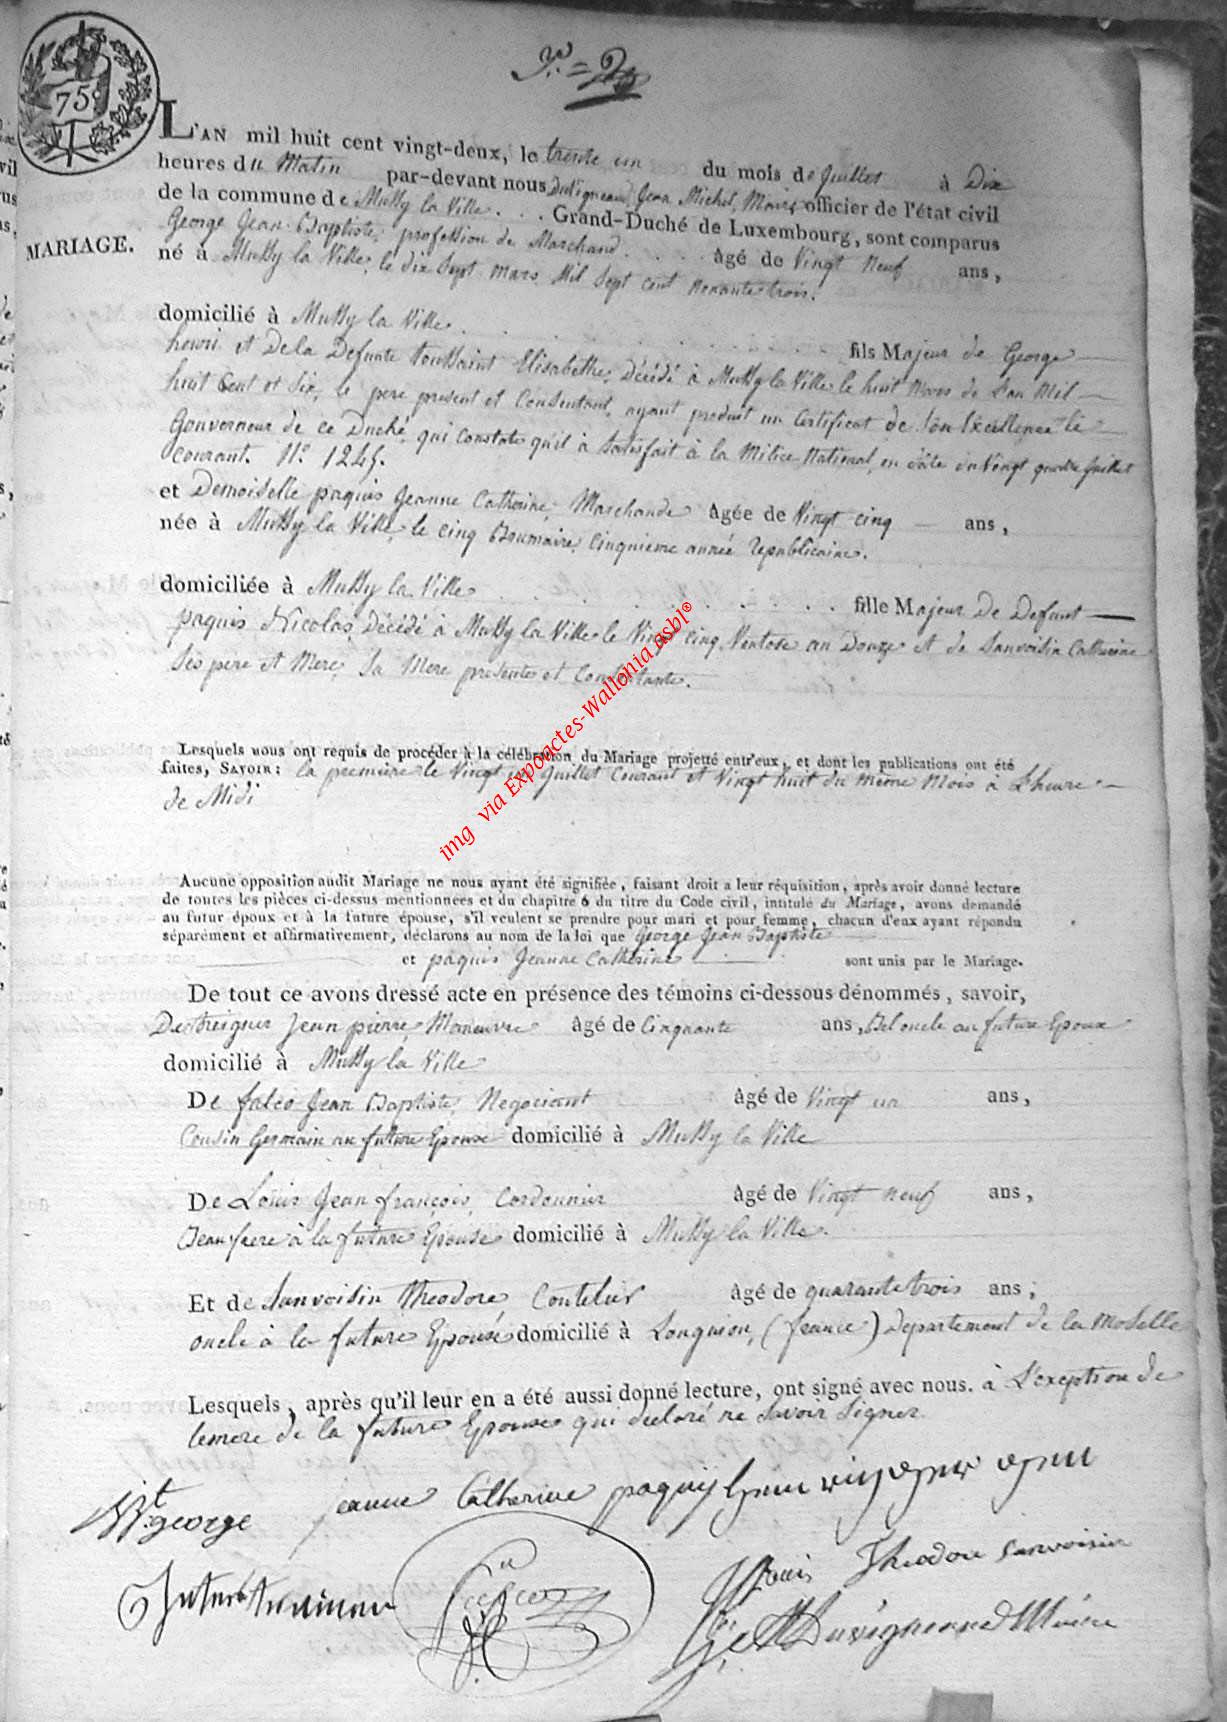 75.
MARIAGE.
L'AN mil huit cent vingt-deux, le trente un du mois de Juillet à Dix
heures du Matin par-devant nous Duvigneaud Jean Michel, Maire officier de l'état civil
de la commune de Mussy la Ville . . . Grand-Duché de Luxembourg, sont comparus
George Jean Baptiste, profession de Marchand . . . . âgé de Vingt neuf ans,
né à Mussy la Ville, le dix Sept mars Mil Sept cent nonante trois.
domicilié à Mussy la Ville . . . fils Majeur de George
henri et De la Defunte toussaint Elisabethe, Décédé à Mussy la Ville le huit Mars de L'an Mil
huit Cent et Six, le pere present et Consentant, ayant produit un Certificat de Son Excellence le
Gouverneur de ce Duché, qui Constate qu'il à Satisfait à la Milice National, en date du Vingt quatre Juillet
Courant. N.o 1245.
et Demoiselle paquis Jeanne Catherine, Marchande âgée de Vingt cinq ans,
née à Mussy la Ville, le cinq Brumaire, cinquieme année republicaine.
domiciliée à Mussy la Ville . . . fille Majeur De Defunt
paquis Nicolas, Décédé à Mussy la Ville le Vingt cinq Ventose an Douze et de Sanvoisin Catherine
Ses pere et Mere, Sa Mere presente et Consentante.
Lesquels nous ont requis de procéder à la célébration du Mariage projetté entr'eux, et dont les publications ont été
faites, SAVOIR : la première le Vingt un Juillet Courant et Vingt huit du même Mois à L'heure
de Midi
Aucune opposition audit Mariage ne nous ayant été signifiée, faisant droit a leur réquisition, après avoir donné lecture
de toutes les pièces ci-dessus mentionnées et du chapitre 6 du titre du Code civil, intitulé du Mariage, avons demandé
au futur époux et à la future épouse, s'il veulent se prendre pour mari et pour femme, chacun d'eux ayant répondu
séparément et affirmativement, déclarons au nom de la loi que George Jean Baptiste
et paquis Jeanne Catherine sont unis par le Mariage.
De tout ce avons dressé acte en présence des témoins ci-dessous dénommés, savoir,
Jean pierre, Maneuvre âgé de Cinquante ans, Bel oncle au future Epoux
domicilié à Mussy la Ville
De falco Jean Baptiste, Negociant âgé de Vingt un ans,
Cousin Germain au future Epoux domicilié à Mussy la Ville
De Louis Jean françois, Cordonnier âgé de Vingt neuf ans,
Beaufrere à la future Epouse domicilié à Mussy la Ville.
Et de Sanvoisin theodore, Coutelier âgé de quarante trois ans;
oncle à la future Epouse domicilié à Longuion, (france) Departement de la Moselle
Lesquels, après qu'il leur en a été aussi donné lecture, ont signé avec nous. à L'exception de
lemere de la future Epouse qui declaré ne Savoir Signer.
george jeanne Catherine paquis
Louis Theodore Sanvoisin
Duvigneaud Maire
img via Expoactes-Wallonia asbl®